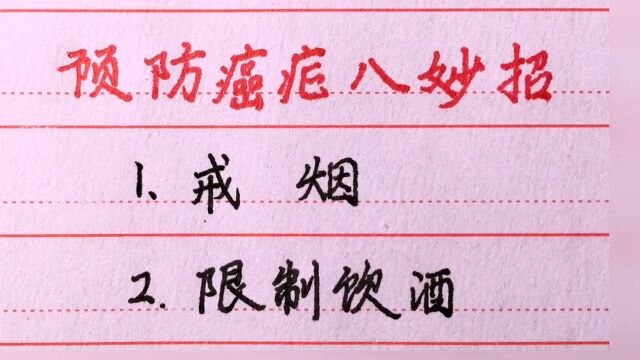 预防癌症八妙招
1. 戒 烟
2. 限制饮酒